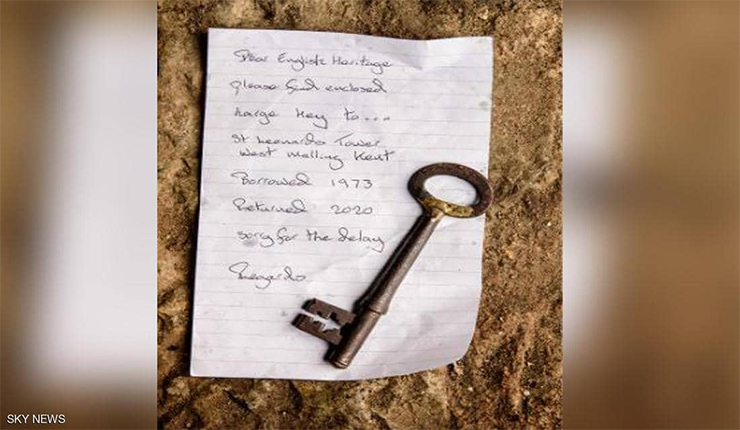 Dear English Heritage
please find enclosed
Large key to....
St Leonards Tower
West Malling Kent
Borrowed 1973
Returned 2020
sorry for the delay
Regards
SKY NEWS